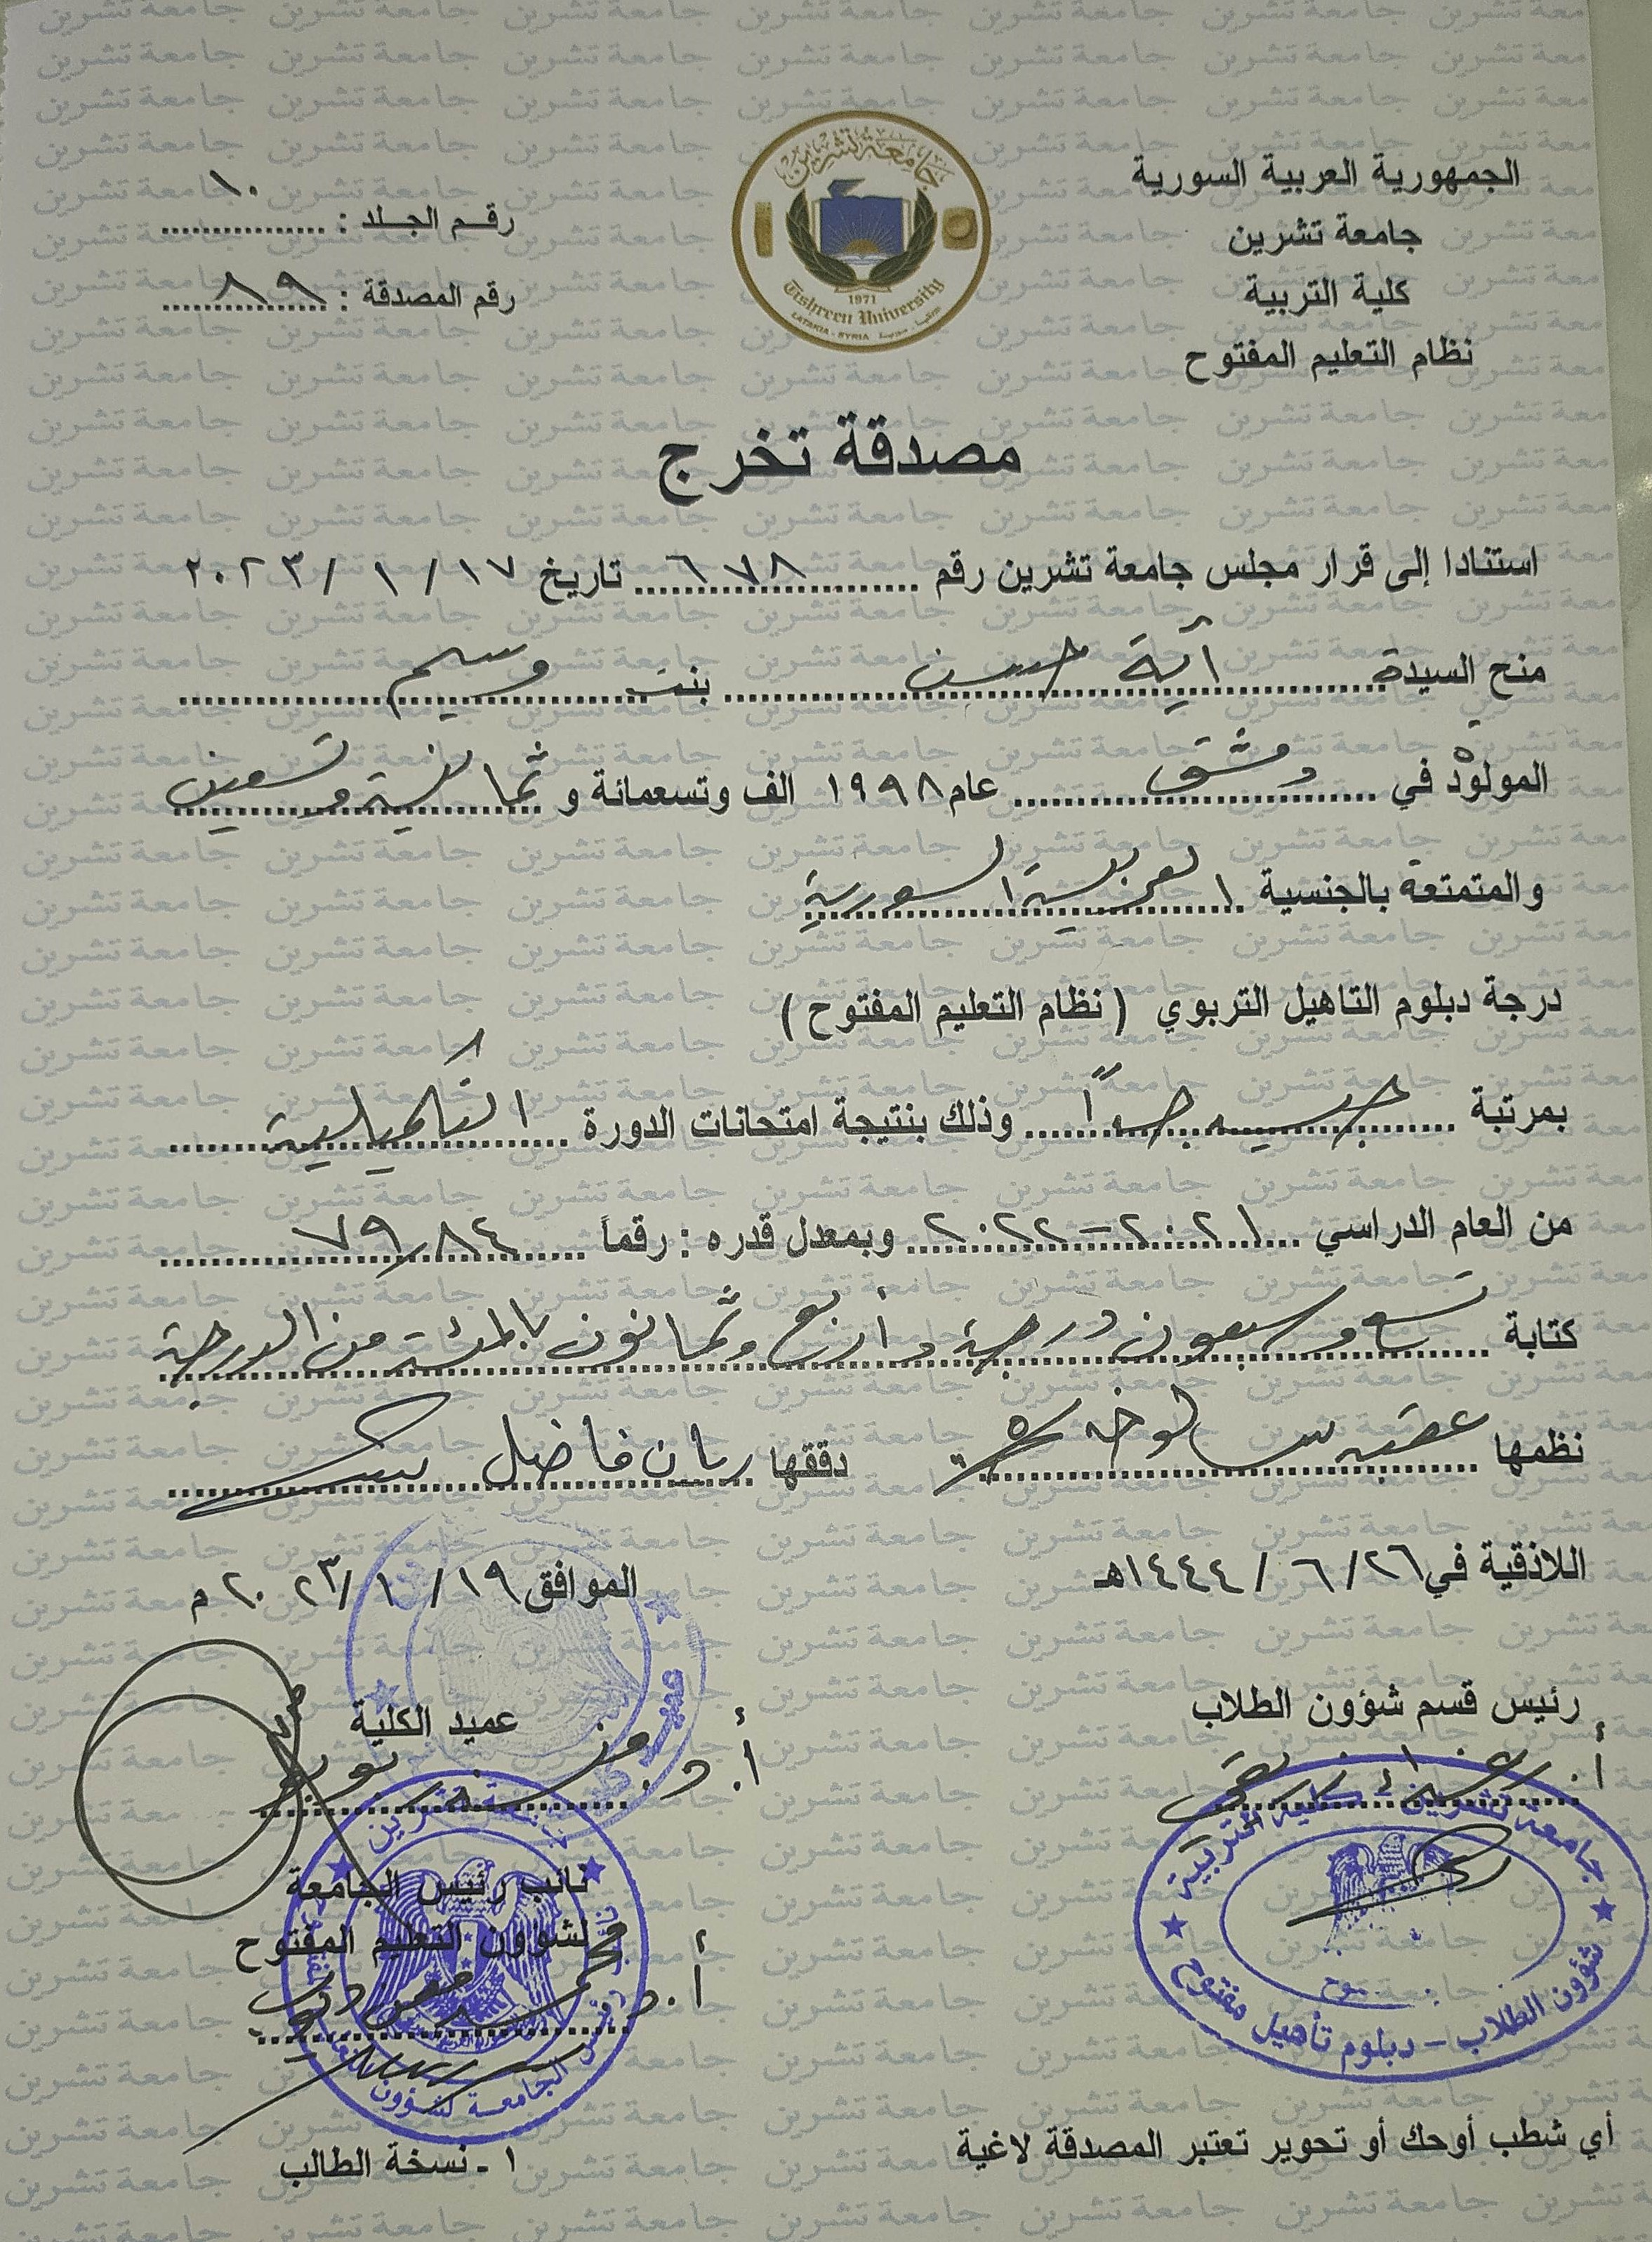 الجمهورية العربية السورية
جامعة تشرين
كلية التربية
نظام التعليم المفتوح
جامعة تشرين
1971
Tishreen University
LATAKIA - SYRIA
رقم الجلد : ١٠
رقم المصدقة : ٨٩
مصدقة تخرج
استنادا إلى قرار مجلس جامعة تشرين رقم ٦٧٨ تاريخ ١٧ / ١ / ٢٠٢٣
منح السيدة آية حسن بنت وسيم
المولودة في دمشق عام ١٩٩٨ الف وتسعمائة و ثمانية وتسعين
والمتمتعة بالجنسية العربية السورية
درجة دبلوم التاهيل التربوي ( نظام التعليم المفتوح )
بمرتبة جيد جداً وذلك بنتيجة امتحانات الدورة التكميلية
من العام الدراسي ٢٠٢١-٢٠٢٢ وبمعدل قدره : رقماً ٧٩,٨٤
كتابة تسع وسبعون درجة وأربع وثمانون بالمئة من الدرجة
نظمها دققها فاضل
اللاذقية في ٢٦ / ٦ / ١٤٤٤هـ الموافق ١٩ / ١ / ٢٠٢٣ م
رئيس قسم شؤون الطلاب
عميد الكلية
أ.
أ. د.
جامعة تشرين - كلية التربية
شؤون الطلاب - دبلوم تأهيل مفتوح
نائب رئيس الجامعة
لشؤون التعليم المفتوح
أ. د. محمد
أي شطب أوحك أو تحوير تعتبر المصدقة لاغية
١ - نسخة الطالب